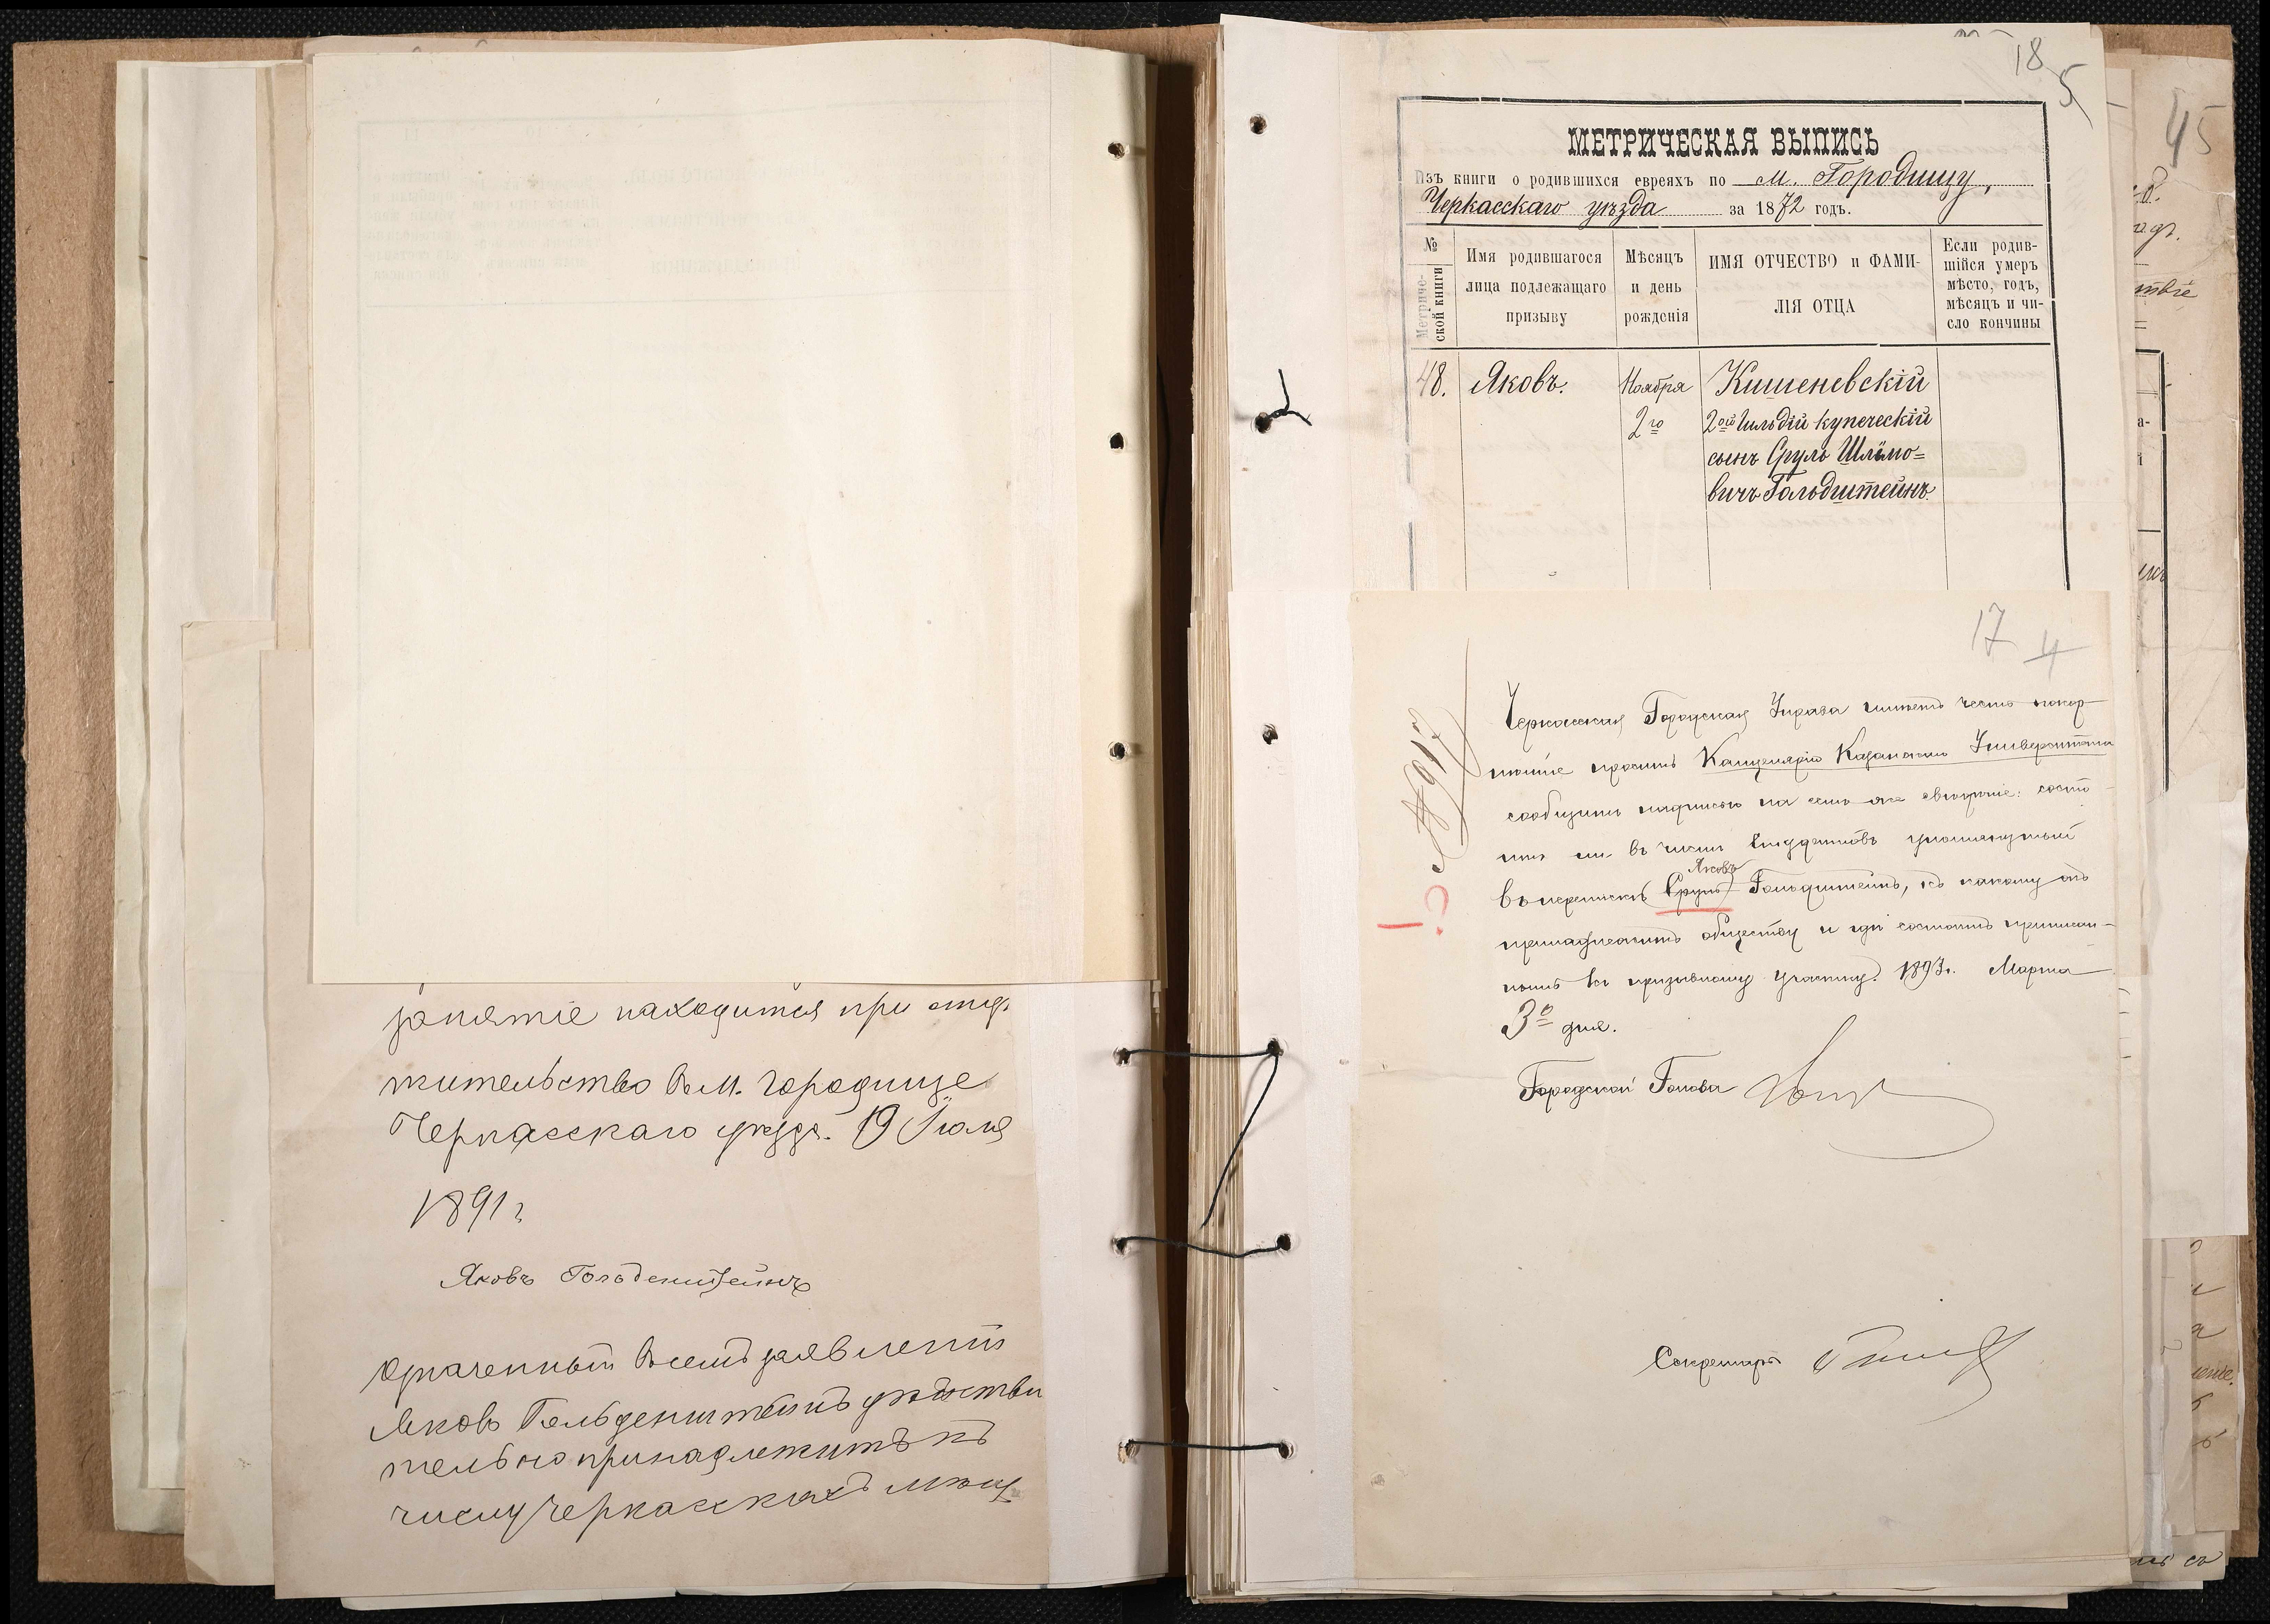 занятіе находится при отц.
жительство въ М. Городище
Черкасскаго уѣзда. 19 Іюля
1891 г
Яковъ Гольденштейнъ
Означенный въ семъ заявленіи
Яковъ Гольденштейнъ дѣйстви
тельно принадлежитъ къ
числу Черкасскихъ мѣщ
18
5
МЕТРИЧЕСКАЯ ВЫПИСЬ
Изъ книги о родившихся евреяхъ по м. Городищу,
Черкасскаго уѣзда за 1872 годъ.
№ Метриче-ской книги
Имя родившагося лица подлежащаго призыву
Мѣсяцъ и день рожденія
ИМЯ ОТЧЕСТВО и ФАМИ-ЛІЯ ОТЦА
Если родив-шійся умеръ мѣсто, годъ, мѣсяцъ и чи-сло кончины
48. Яковъ. Ноября Кишеневскій
2го 2ой Гильдіи купеческій
сынъ Сруль Шлёмо=
вичъ Гольдштейнъ.
17 4
№ 917
Черкасская Городская Управа имѣетъ честь покор-
нѣйше просить Канцелярію Казанскаго Университета
сообщить надписью на семъ же свѣдѣніе: состо-
итъ ли въ числѣ студентовъ упомянутый
Яковъ
въ перепискѣ (Сруль) Гольдштейнъ, къ какому онъ
принадлежитъ обществу и гдѣ состоитъ приписан-
нымъ къ призывному участку. 1893 г. Марта
3го дня.
Городской Голова
Секретарь
45